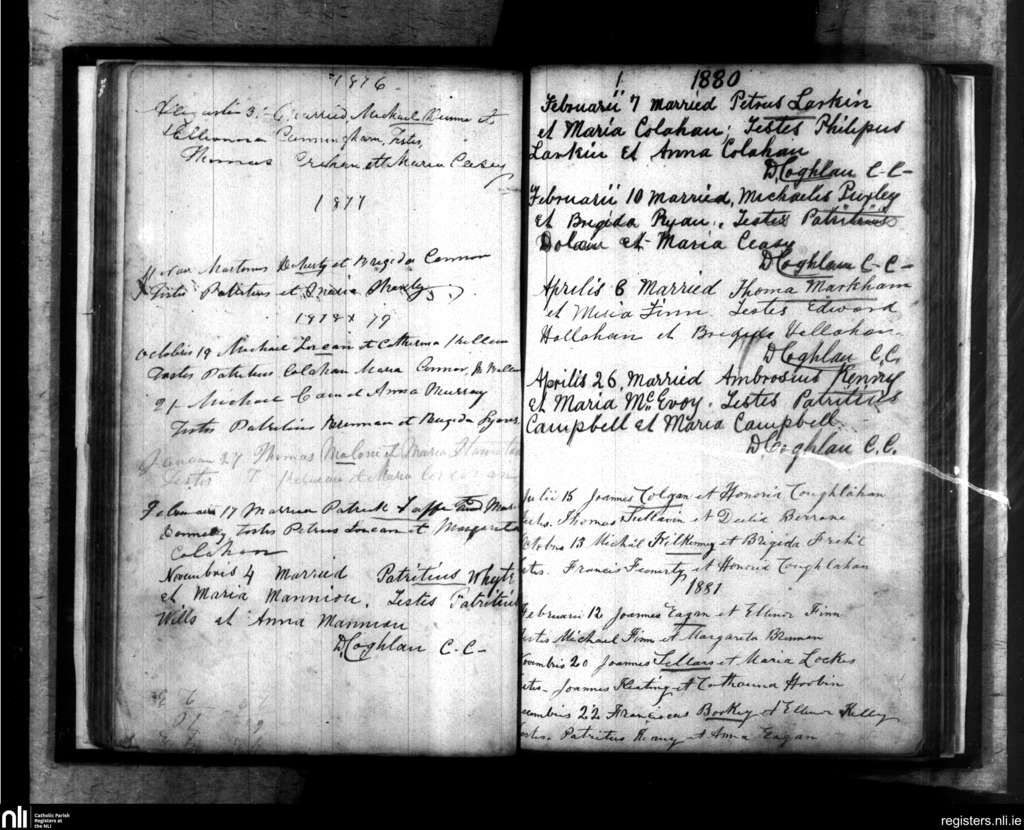 1876
3 Married Michael Dinnen et
Ellionora Cunningham, Testes,
Thomas et Maria Casey
1877
11 Nov Martinus Doherty et Brigida Connor
Testes Patritius et Maria
1878 & 79
Octobris 19 Michael Lorcan et Catherina
Testes Patritius Colahan Maria Connor,
21 Michael et Anna Murray
Testes Patritius Brennan et Brigida Lyons
27 Thomas Malone et Maria
Testes et Maria Corcoran
Februarii 17 Married Patrick Taffe and
Donnelly Testes Petrus Lorcan et Margarita
Colahan
Novembris 4 Married Patritius Whyte
et Maria Mannion. Testes Patritius
Wills et Anna Mannion
D. Coghlan C.C-
1880
Februarii 7 married Petrus Larkin
et Maria Colahan; Testes Philipus
Larkin et Anna Colahan
D. Coghlan C-C-
Februarii 10 married, Michaelis
et Brigida Ryan. Testes Patritius
Dolan et Maria Ceasy
D Coghlan C-C-
Aprilis 6 Married Thoma Markham
et Maria Finn Testes Edward
Hollahan et Brigida Hollahan
D Coghlan C.C,
Aprilis 26, Married Ambrosius Kenny
et Maria McEvoy. Testes Patritius
Campbell et Maria Campbell.
D. Coghlan C.C.
Julii 15 Joannes Colgan et Honoria Coughlahan
Thomas Sullavin et Delia
13 Michal Kilkenny et Brigida
Francis et Honoria Coughlahan
1881
Februarii 12 Joannes Eagan et Ellenor Finn
Michael Finn et Margarita Brennan
20 Joannes Sellars et Maria Lockes
Joannes Keating et Catharina
22 Franciscus Bookey et Ellenor Kelly
Patritius Keany et Anna Eagan
nli
Catholic Parish
Registers at
the NLI
registers.nli.ie